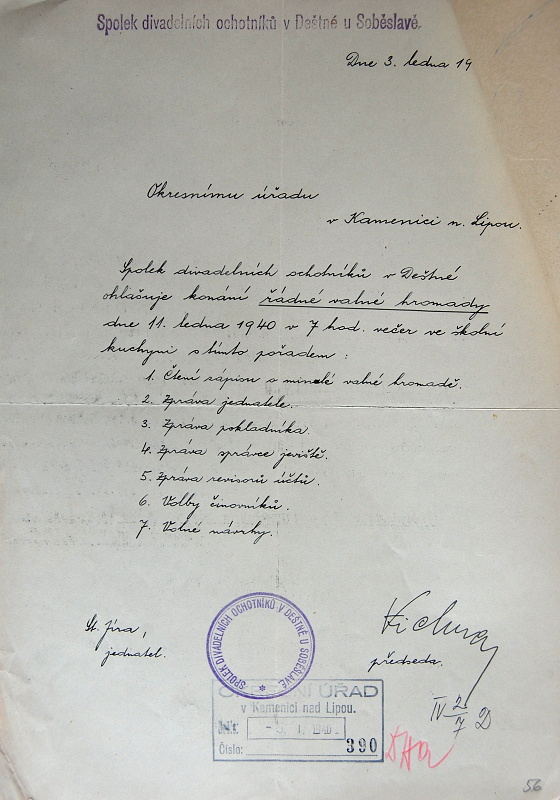 Spolek divadelních ochotníků v Deštné u Soběslavě.
Dne 3. ledna 19
Okresnímu úřadu
v Kamenici n. Lipou.
Spolek divadelních ochotníků v Deštné
ohlašuje konání řádné valné hromady
dne 11. ledna 1940 v 7 hod. večer ve školní
kuchyni s tímto pořadem :
1. Čtení zápisu o minulé valné hromadě.
2. Zpráva jednatele.
3. Zpráva pokladníka.
4. Zpráva správce jeviště.
5. Zpráva revisorů účtů.
6. Volby činovníků.
7. Volné návrhy.
St. Jíra,
jednatel.
SPOLEK DIVADELNÍCH OCHOTNÍKŮ V DEŠTNÉ U SOBĚSLAVĚ
předseda.
OKRESNÍ ÚŘAD
v Kamenici nad Lipou.
Číslo: 390
IV 2/7 D
56